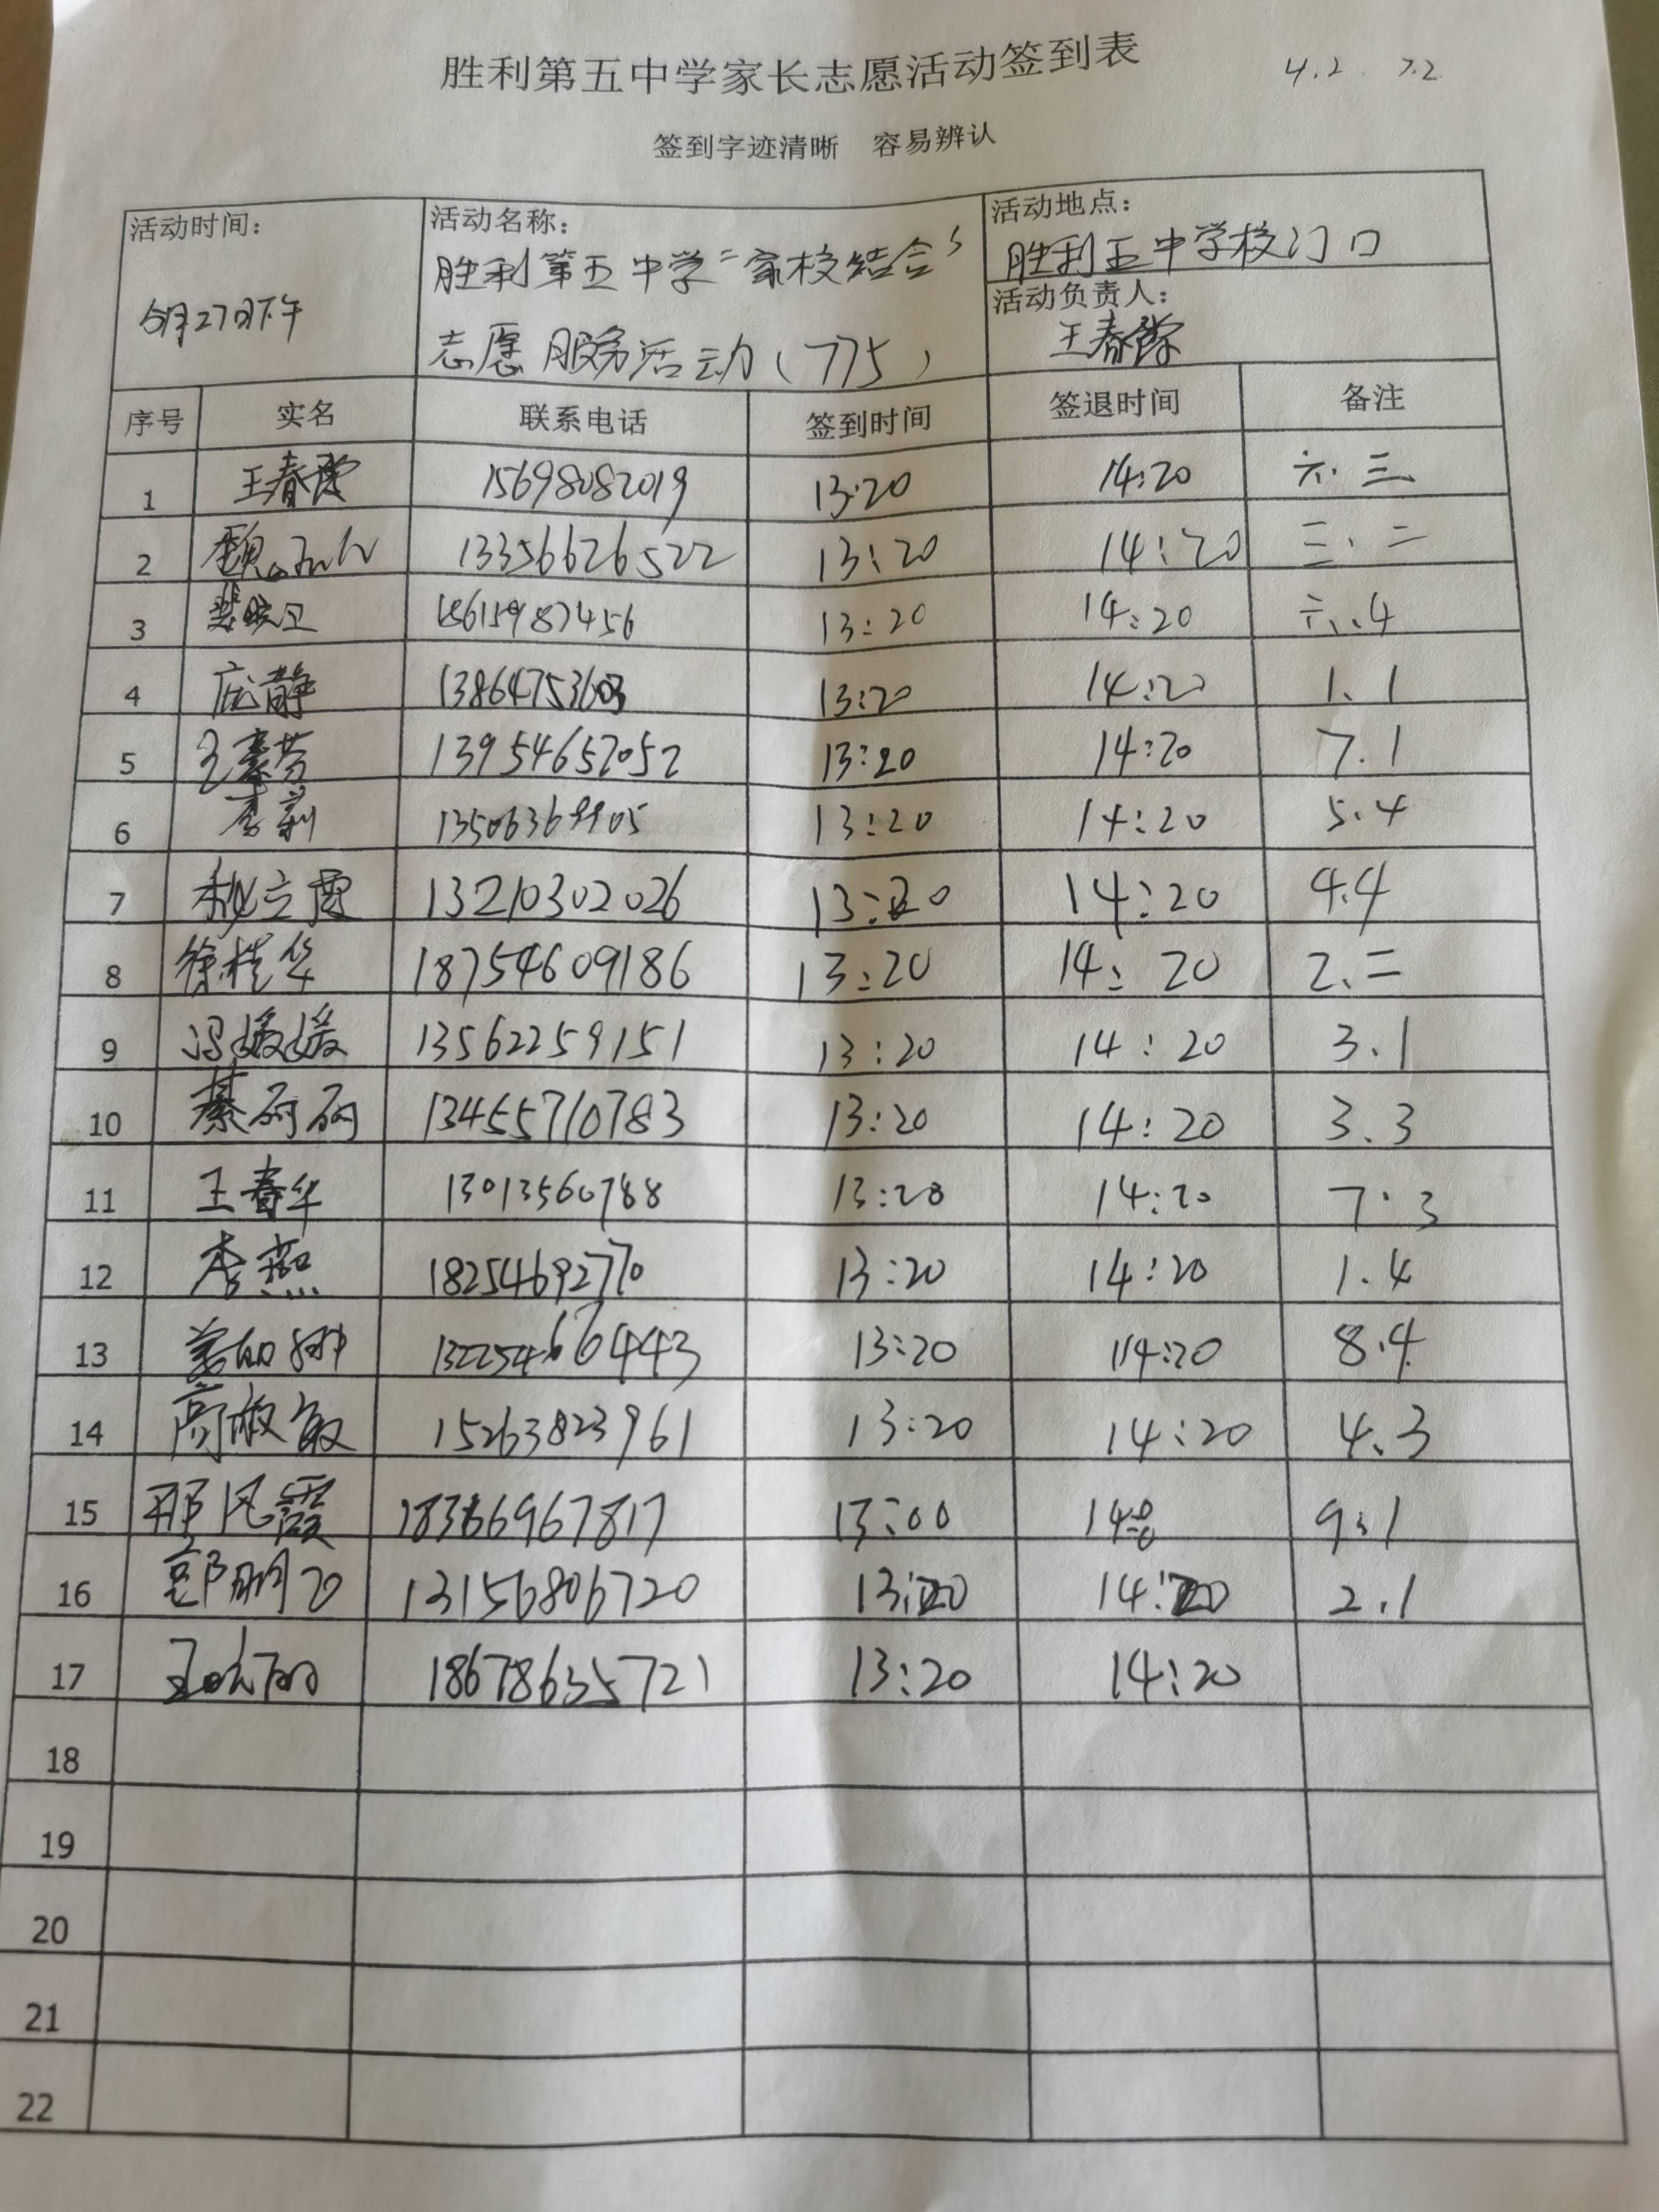 胜利第五中学家长志愿活动签到表 4.2 7.2
签到字迹清晰 容易辨认
活动时间：
月27日下午
活动名称：
胜利第五中学“家校结合”
志愿服务活动（775）
活动地点：
胜利五中学校门口
活动负责人：
王春
序号 实名 联系电话 签到时间 签退时间 备注
1 王春 15698082019 13:20 14:20 六.三
2 13356626522 13:20 14:20 三.二
3 18615987456 13:20 14:20 六.4
4 静 13864753603 13:20 14:20 1.1
5 13954652052 13:20 14:20 7.1
6 李莉 13:20 14:20 5.4
7 立霞 13210302026 13:20 14:20 4.4
8 徐桂华 18754609186 13:20 14:20 2.二
9 冯媛媛 13562259151 13:20 14:20 3.1
10 綦丽丽 13455710783 13:20 14:20 3.3
11 王春华 13013560788 13:20 14:20 7.3
12 李燕 18254692770 13:20 14:20 1.4
13 姜如娜 13:20 14:20 8.4
14 高淑敏 15263823961 13:20 14:20 4.3
15 邢凤霞 18366967817 13:00 9.1
16 郭朋 13156806720 13:20 14:20 2.1
17 王晓丽 18678635721 13:20 14:20
18
19
20
21
22